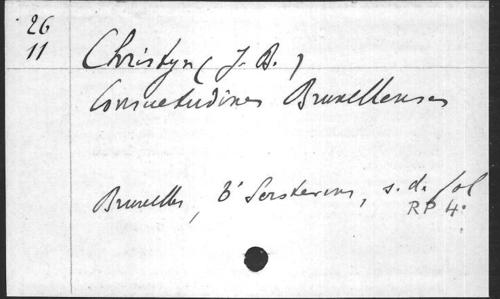 26
11
Christyn (J. B.)
Consuetudines Bruxellenses
Bruxelles, t'Serstevens, s.d. fol
RP 4°